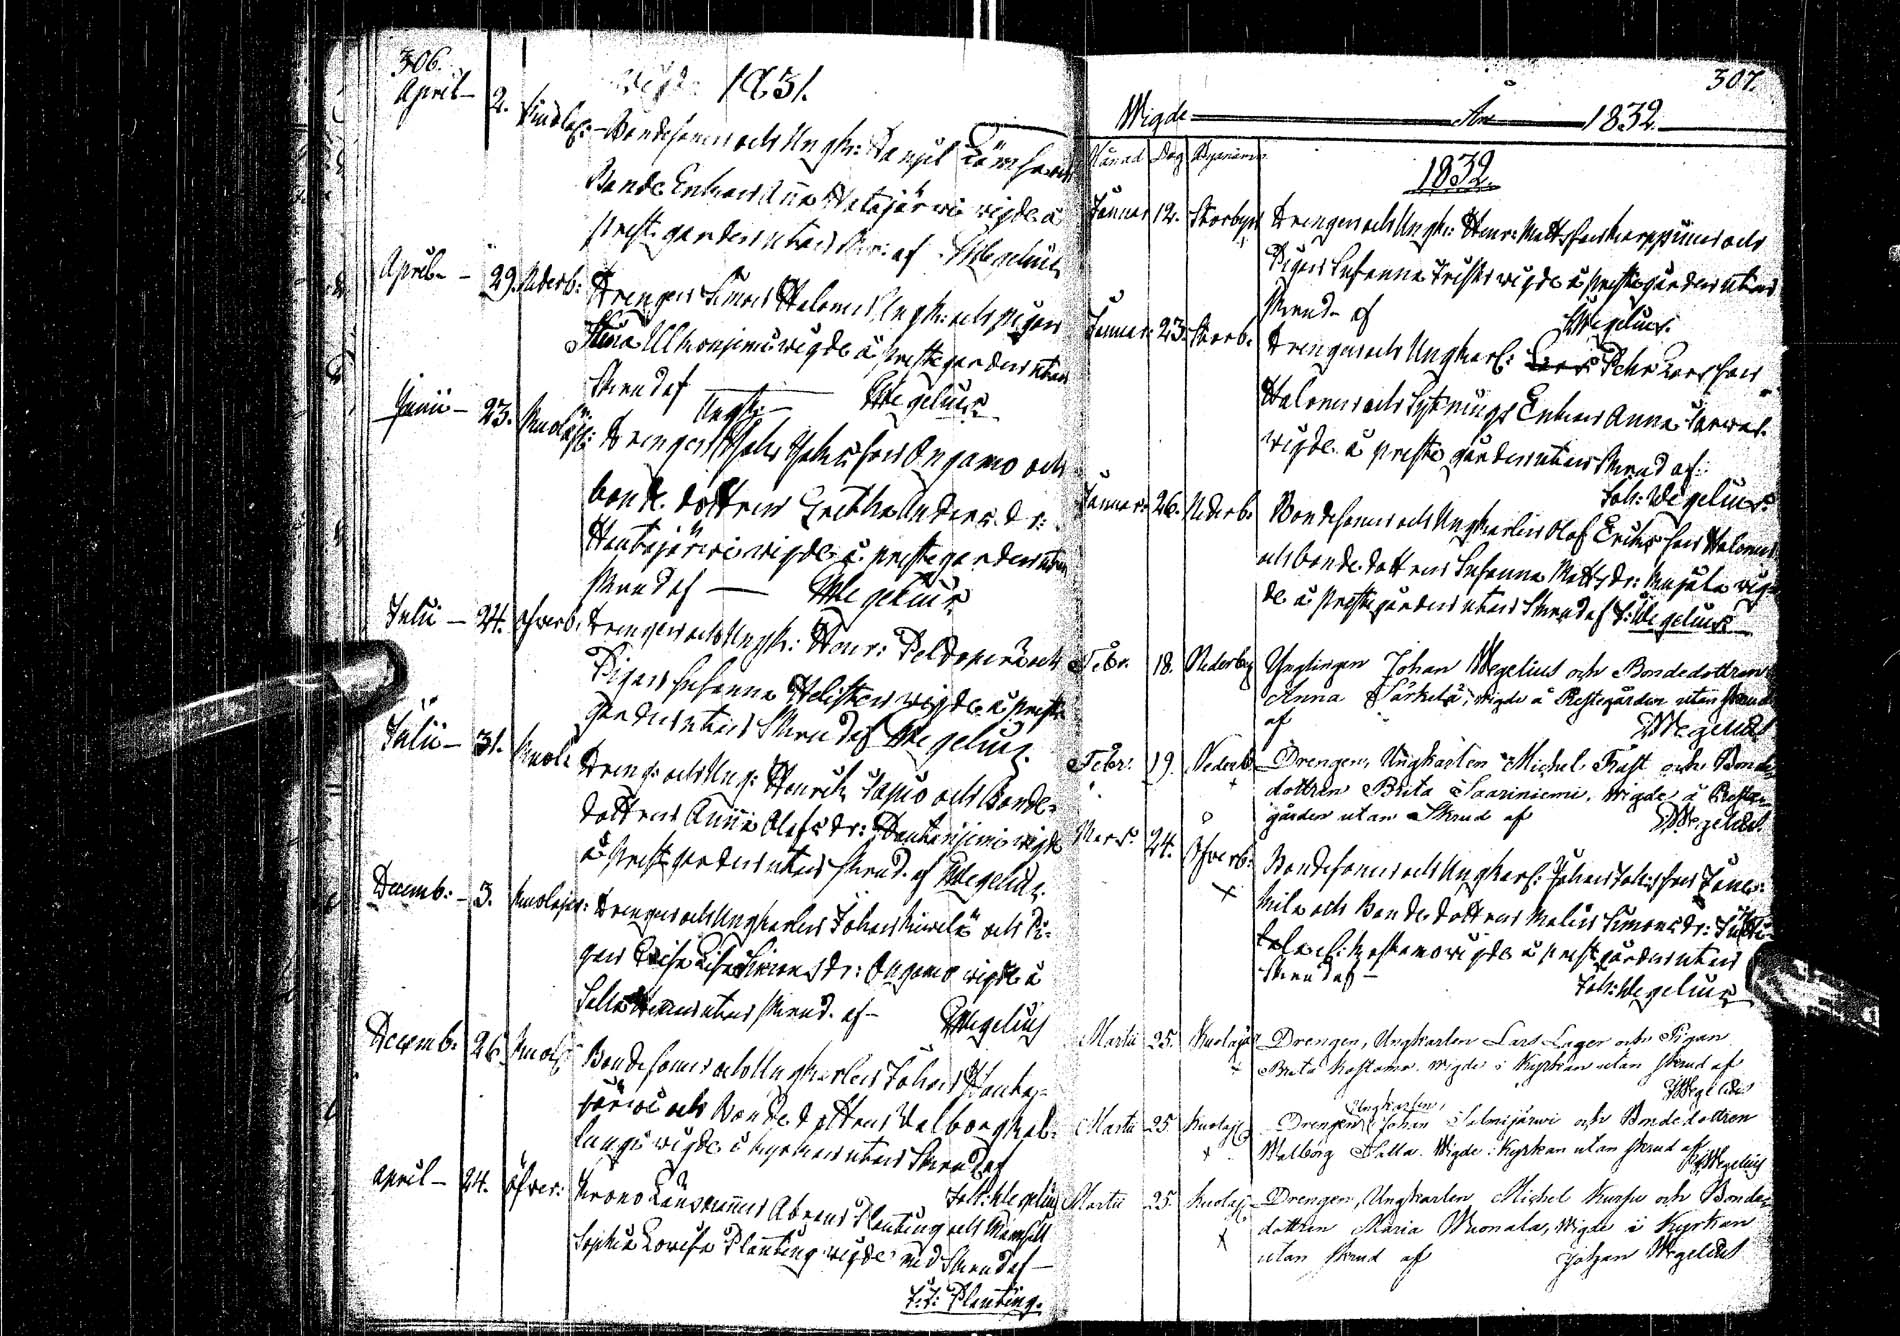 306.
Wigde 1831.
April — 2. Bondesonen och Ungk: Daniel
Bonde Enkan Anna Hatajärwi wigde å
prestgården utan Skr: af Wegelius
April — 29. Nederb: Drengen Simon Halonen Ungk: och pigan
Stina Ulkoniemi wigde å prestegården utan
Skrud af — Wegelius
Junii — 23. Kuolaj: Drengen Ungk: Johan Johansson Angamo och
bonde dottren Gretha Anders dr:
Hautajärwi wigde å prestegården utan
Skrud af — Wegelius
Julii — 24. Öfverb. Drengen och Ungk: Henr: Peldoperä och
Pigan Susanna Helisten wigde å prest-
gården utan Skrud af Wegelius.
Julii — 31. Kuol: Dreng: och Ung: Henrik Tapio och Bonde-
dottren Anna Olofs dr: wigde
å prestgården utan Skrud. af Wegelius
Decemb: — 3. Kuolajer: Drengen och Ungkarlen Johan Kiwelä och Pi-
gan Lisa Simons dr: Angamo wigde å
Salla utan Skrud. af — Wegelius
Decemb. 26. Kuolaj: Bondesonen och Ungkarlen Johan Hauta-
järwi och Bonde dottren Valborg Kal-
lungi wigde i kyrkan utan Skrud af
Joh: Wegelius
April — 24. Öfver: Krono Länsmannen Abram Planting och Mamsell
Sophia Lovisa Planting wigde med Skrud af —
J: J: Planting.
307.
Wigde — År — 1832.
Månad Dag Bynamn
1832.
Januar 12. Storbyn Drengen och Ungk: Henr: Mattsson Karppinen och
Pigan Susanna wigde å prestegården utan
Skrud af Wegelius.
Januar: 23. Storb. Drengen och Ungkarl: Lars Pehr Larsson
Halonen och Sytnings Enkan Anna
wigde å preste gården utan Skrud af:
Joh: Wegelius.
Januar: 26. Nederb. Bondesonen och Ungkarlen Olof Eriksson Halonen
och bonde dottren Susanna Matts dr: Kujala wig-
de å Prestegården utan Skrud af J: Wegelius
Febr. 18. Nederby Ynglingen Johan Wegelius och Bondedottren
Anna Särkelä, wigde å Prestegården utan skrud
af JWegelius
Febr. 19. Nederb Drengen, Ungkarlen Michel Frast och Bonde-
dottren Brita Saariniemi, Wigde å Preste-
gården utan Skrud af JWegelius
Mars. 24. Öfverb: Bondesonen och Ungkarl: Johan Johansson
och Bonde dottren Malin Simons dr:
wigde å prestgården utan
Skrud af — Joh: Wegelius
Martii 25. Kuolajer Drengen, Ungkarlen Lars Lager och Pigan
Brita Kostamo. wigde i Kyrkan utan skrud af
JWegelius
Martii 25. Kuolaj: Drengen, Ungkarlen, Johan Salmijärwi och Bondedottren
Walborg Salla. Wigde i Kyrkan utan skrud af JWegelius
Martii 25. Kuolaj: Drengen, Ungkarlen Michel Kurju och Bonde-
dottren Maria Wuonala, Wigde i Kyrkan
utan Skrud af Johan Wegelius